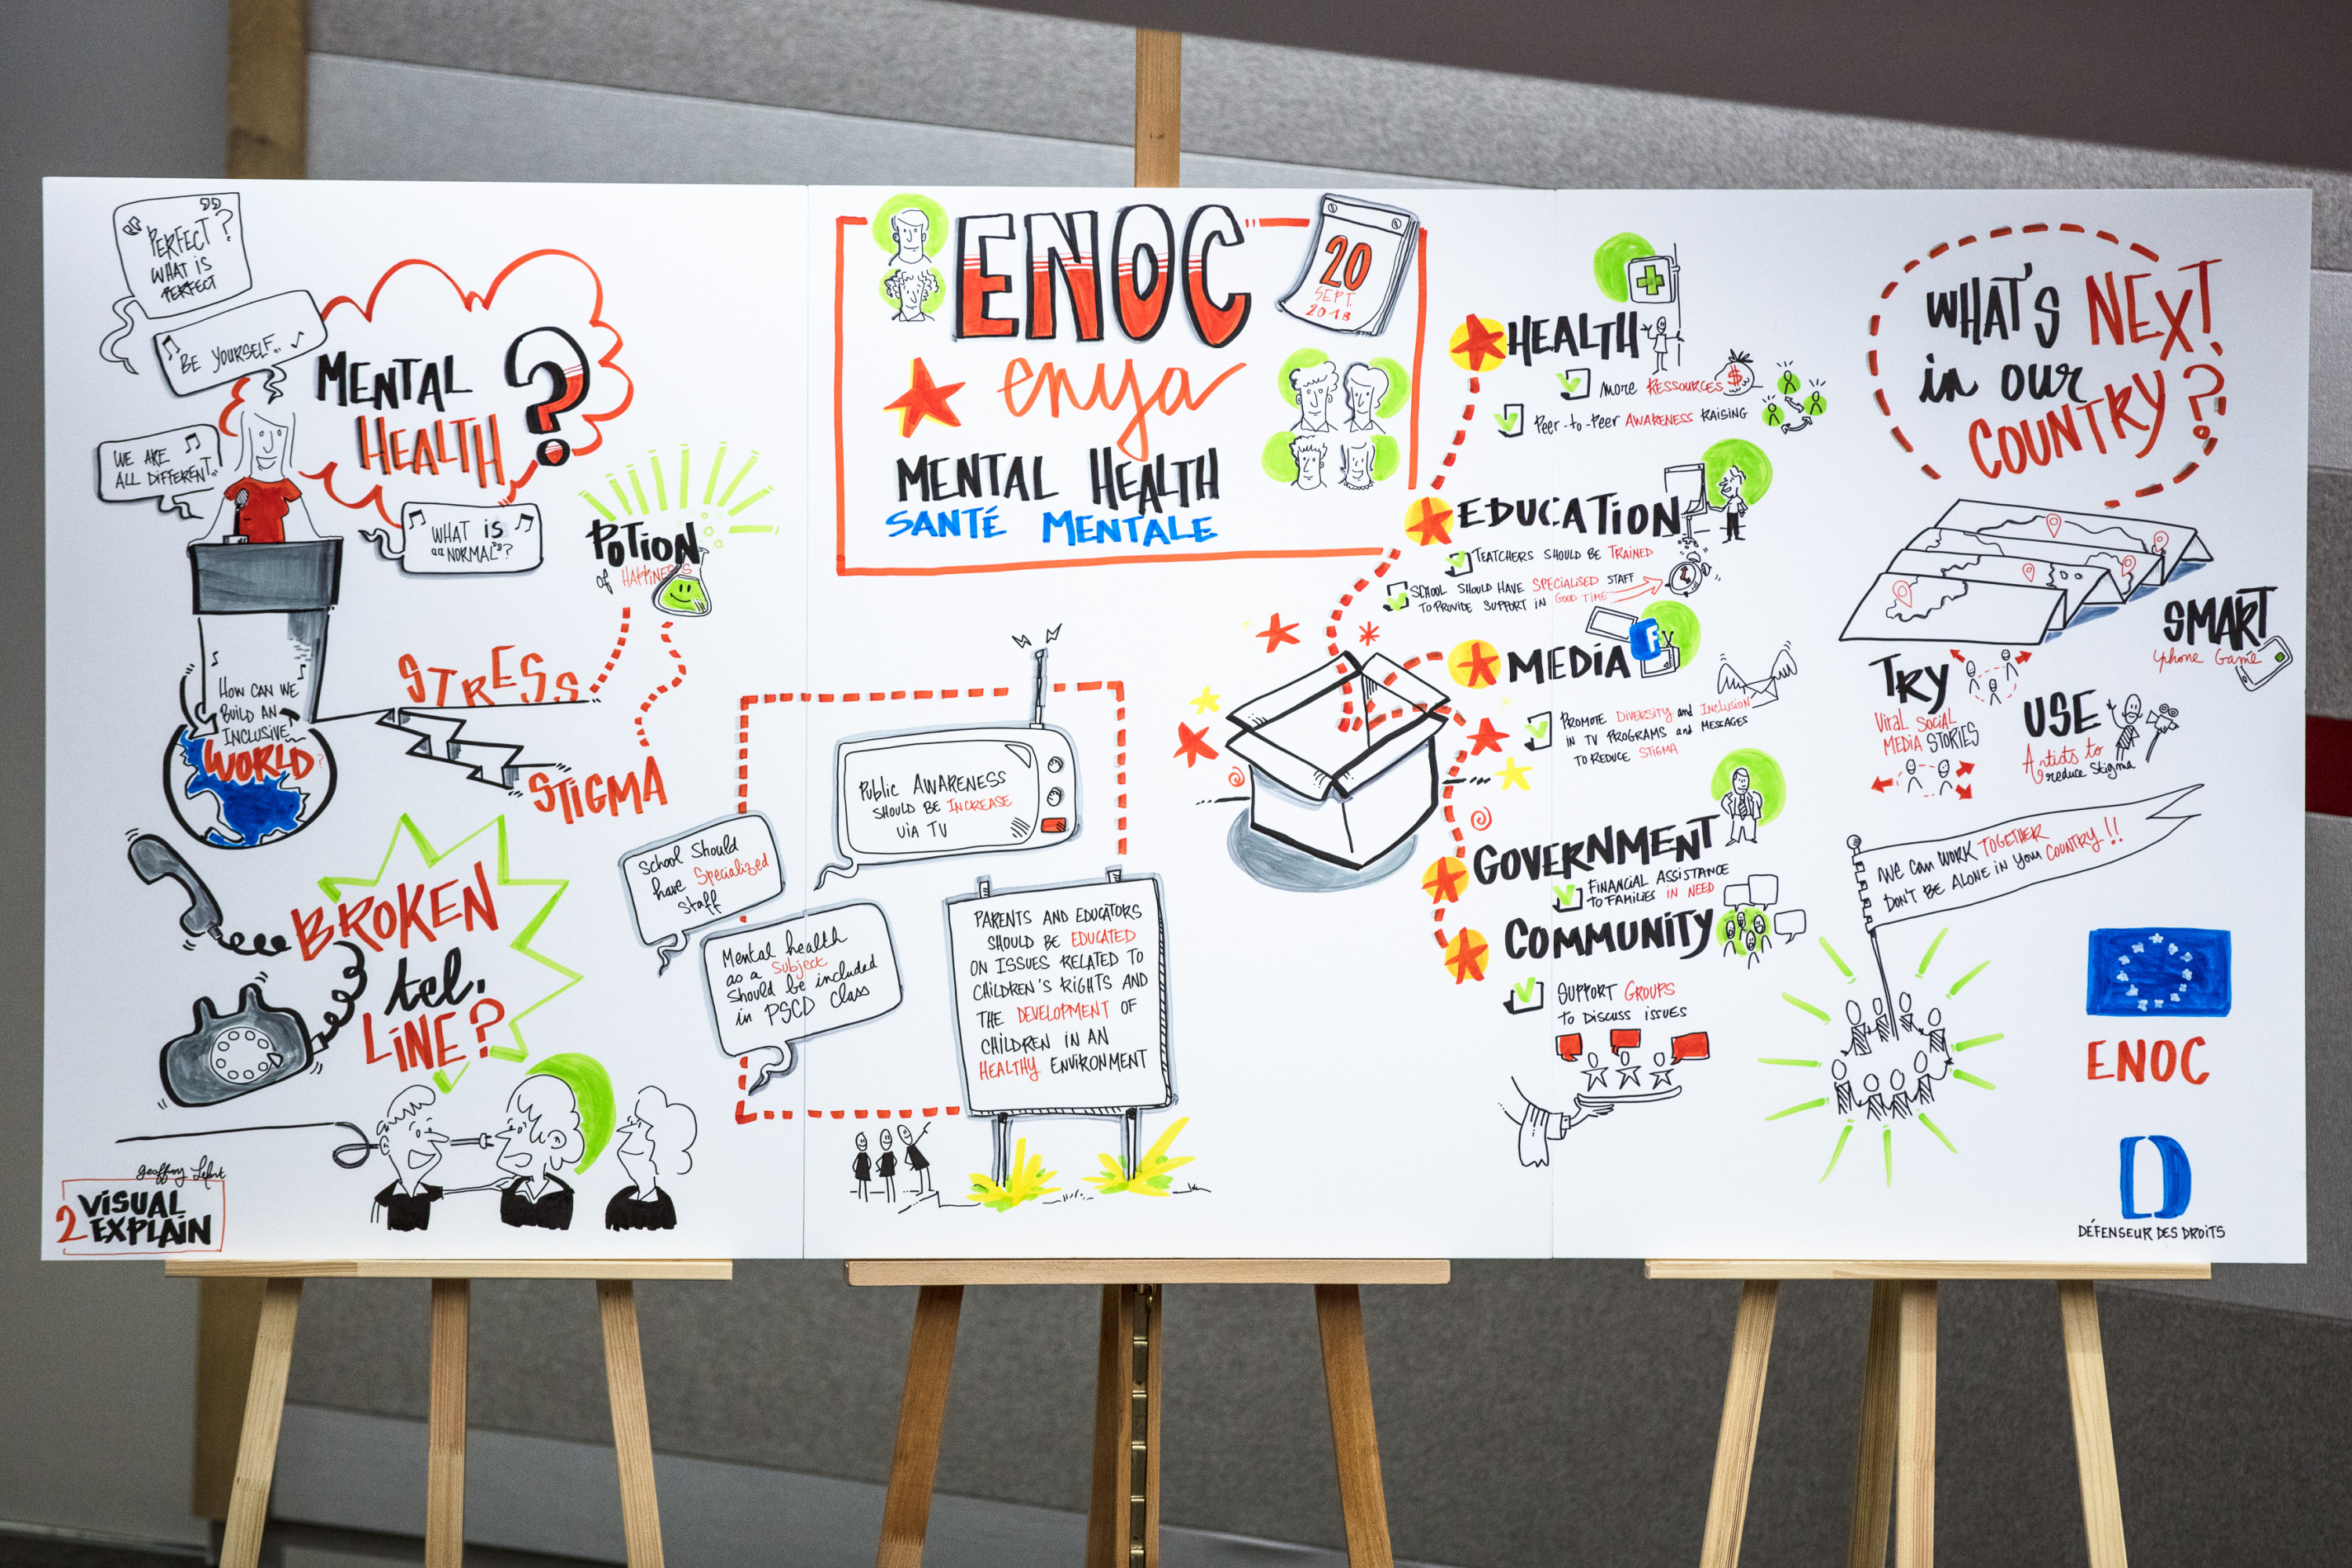 "PERFECT"?
WHAT IS
PERFECT
BE YOURSELF..
WE ARE
ALL DIFFERENT..
MENTAL
HEALTH ?
WHAT IS
"NORMAL"?
POTION
of HAPPINESS
STRESS
STIGMA
HOW CAN WE
BUILD AN
INCLUSIVE
WORLD?
BROKEN
tel.
LINE?
2 VISUAL
EXPLAIN
ENOC
20
SEPT.
2018
enya
MENTAL HEALTH
SANTÉ MENTALE
Public AWARENESS
SHOULD BE INCREASE
ViA TV
School Should
have Specialized
staff
Mental health
as a Subject
Should be included
in PSCD class
PARENTS AND EDUCATORS
SHOULD BE EDUCATED
ON ISSUES RELATED TO
CHILDREN'S RIGHTS AND
THE DEVELOPMENT OF
CHILDREN IN AN
HEALTHY ENVIRONMENT
HEALTH
more RESSOURCES $
Peer-to-Peer AWARENESS RAISING
EDUCATION
TEATCHERS SHOULD BE TRAINED
SCHOOL SHOULD HAVE SPECIALISED STAFF
TO PROVIDE SUPPORT IN GOOD TIME
MEDIA
F
PROMOTE DIVERSITY and INCLUSION
IN TV PROGRAMS and MESSAGES
TO REDUCE STIGMA
GOVERNMENT
FINANCIAL ASSISTANCE
TO FAMILIES IN NEED
COMMUNITY
SUPPORT GROUPS
to DISCUSS ISSUES
WHAT'S NEXT
in our
COUNTRY?
SMART
yphone Game
TRY
Viral SOCIAL
MEDIA STORIES
USE
Artists to
reduce Stigma
WE CAN WORK TOGETHER
DON'T BE ALONE IN YOUR COUNTRY!!
ENOC
DÉFENSEUR DES DROITS